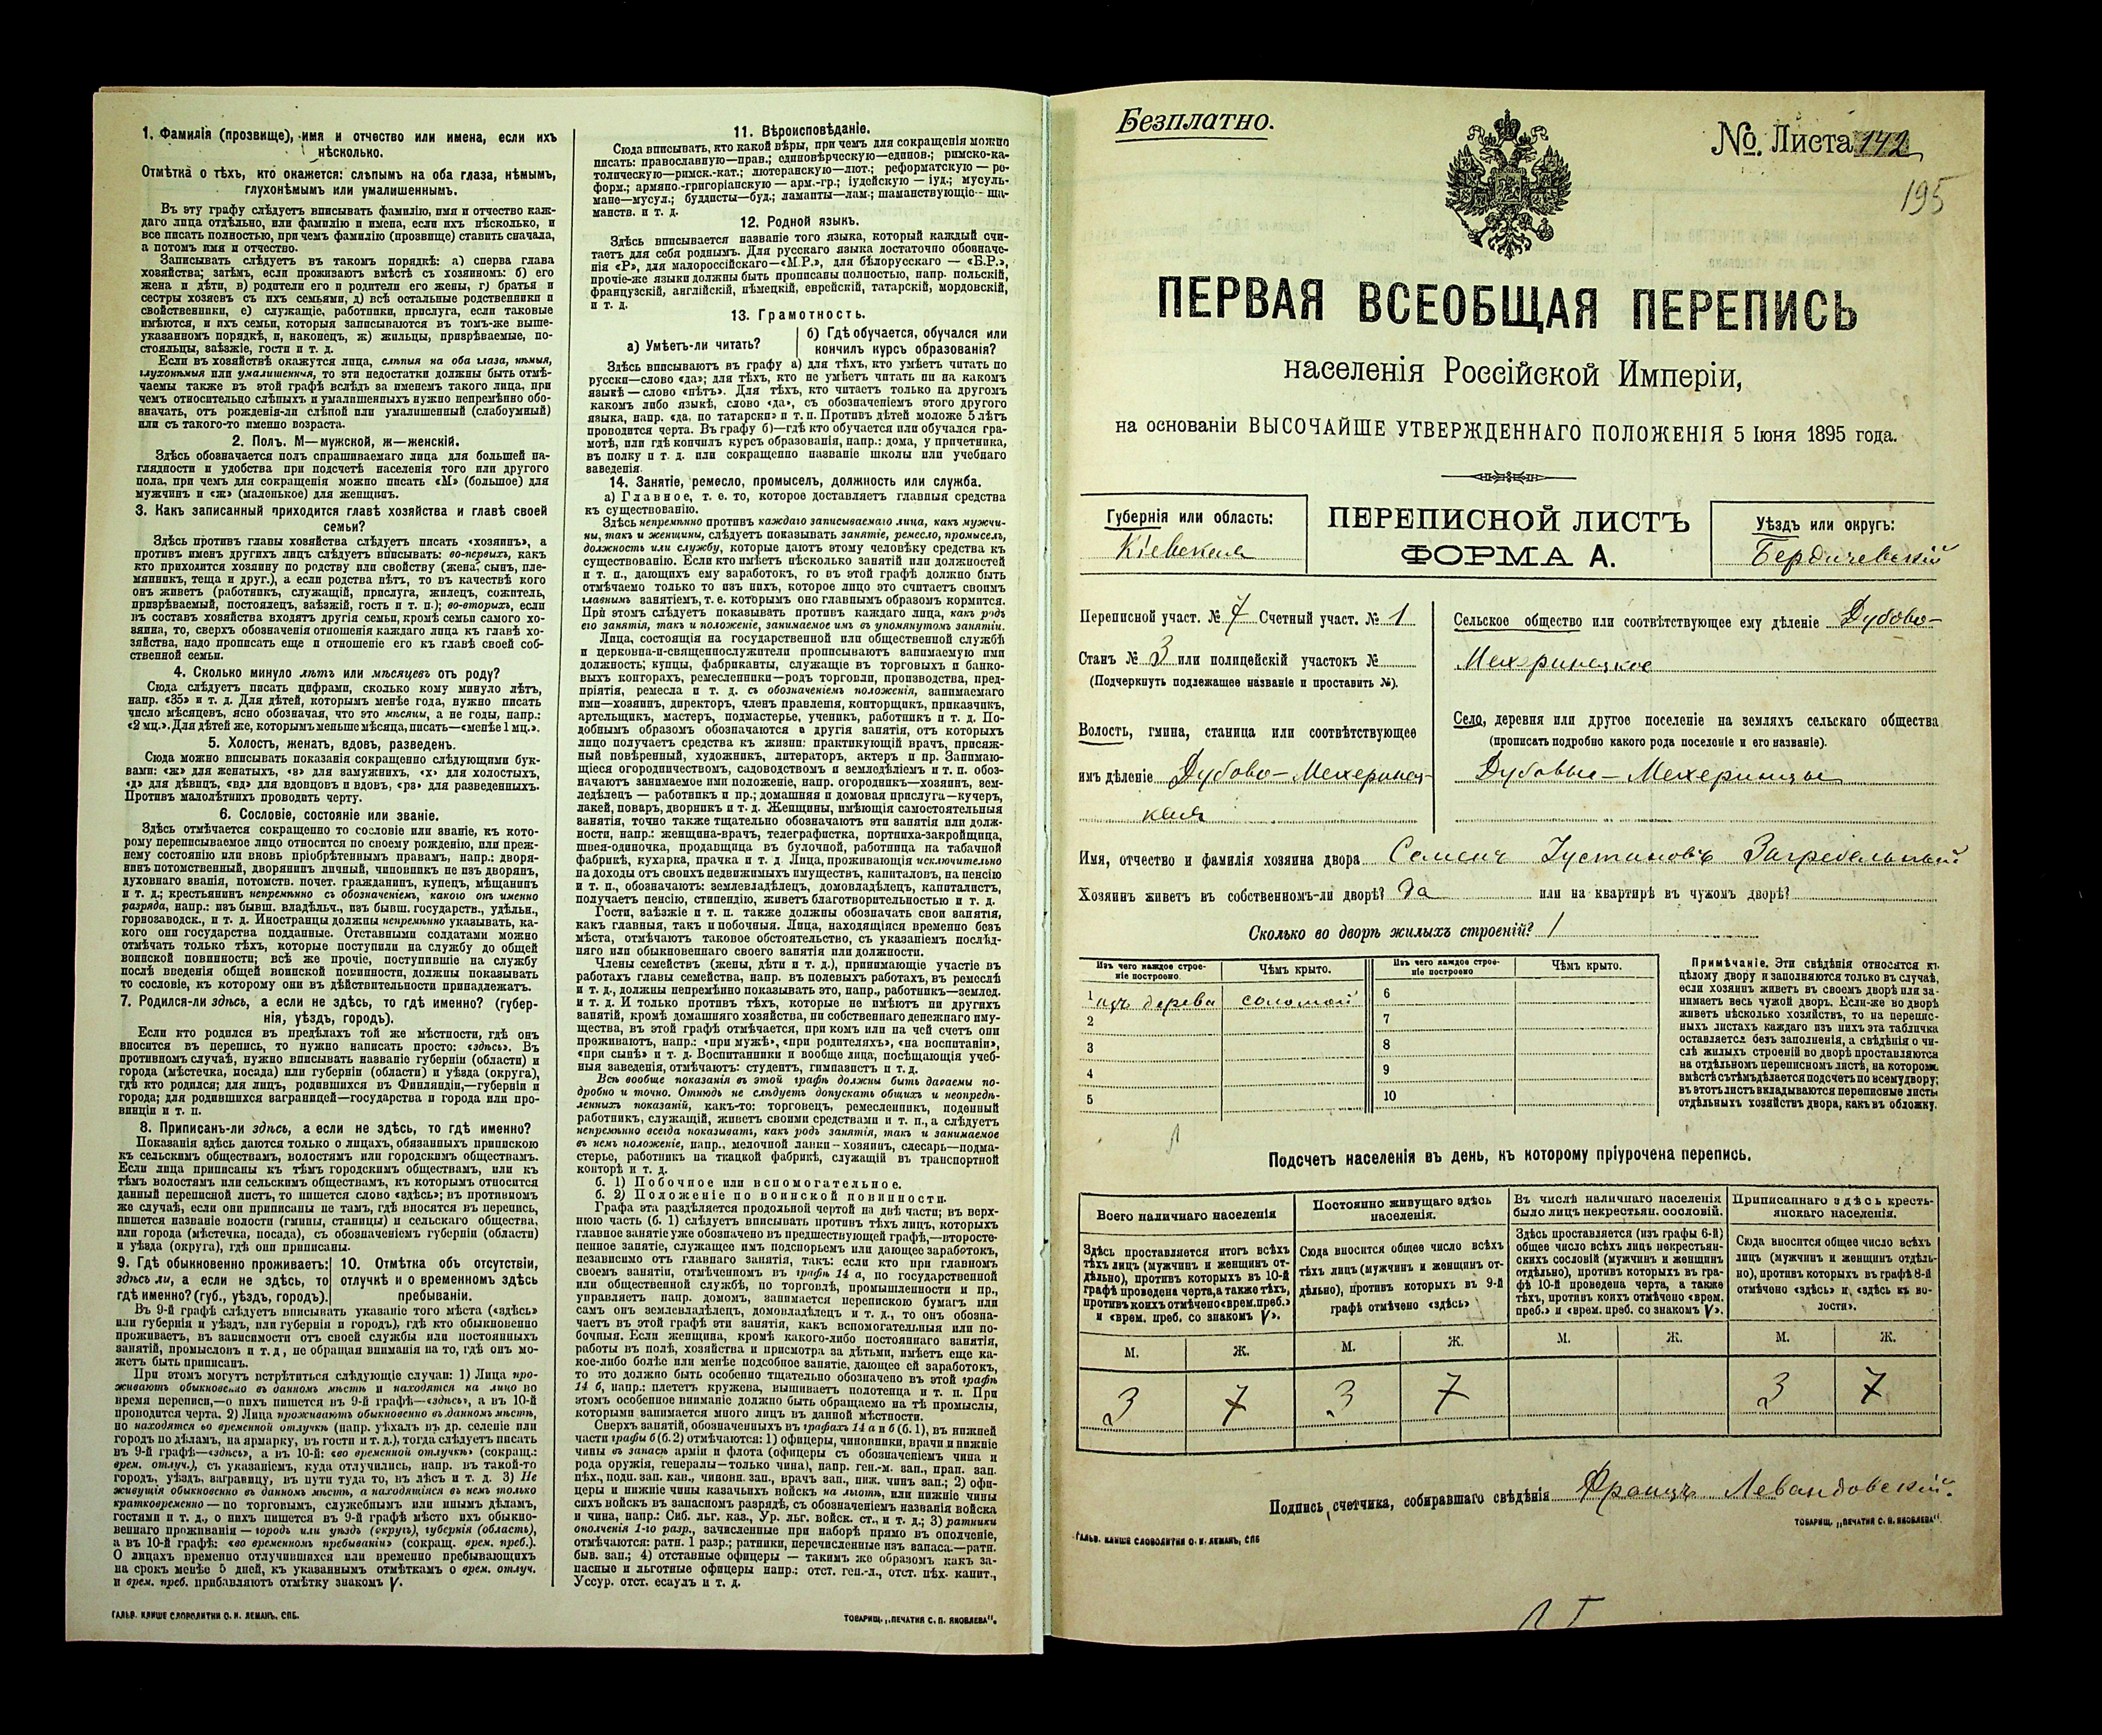 1. Фамилія (прозвище), имя и отчество или имена, если ихъ
нѣсколько.
Отмѣтка о тѣхъ, кто окажется: слѣпымъ на оба глаза, нѣмымъ,
глухонѣмымъ или умалишеннымъ.
Въ эту графу слѣдуетъ вписывать фамилію, имя и отчество каж-
даго лица отдѣльно, или фамилію и имена, если ихъ нѣсколько, и
все писать полностью, при чемъ фамилію (прозвище) ставить сначала,
а потомъ имя и отчество.
Записывать слѣдуетъ въ такомъ порядкѣ: а) сперва глава
хозяйства; затѣмъ, если проживаютъ вмѣстѣ съ хозяиномъ: б) его
жена и дѣти, в) родители его и родители его жены, г) братья и
сестры хозяевъ съ ихъ семьями, д) всѣ остальные родственники и
свойственники, е) служащіе, работники, прислуга, если таковые
имѣются, и ихъ семьи, которыя записываются въ томъ-же выше-
указанномъ порядкѣ, и, наконецъ, ж) жильцы, призрѣваемые, по-
стояльцы, заѣзжіе, гости и т. д.
Если въ хозяйствѣ окажутся лица, слѣпыя на оба глаза, нѣмыя,
глухонѣмыя или умалишенныя, то эти недостатки должны быть отмѣ-
чаемы также въ этой графѣ вслѣдъ за именемъ такого лица, при
чемъ относительно слѣпыхъ и умалишенныхъ нужно непремѣнно обо-
значать, отъ рожденія-ли слѣпой или умалишенный (слабоумный)
или съ такого-то именно возраста.
2. Полъ. М—мужской, ж—женскій.
Здѣсь обозначается полъ спрашиваемаго лица для большей на-
глядности и удобства при подсчетѣ населенія того или другого
пола, при чемъ для сокращенія можно писать «М» (большое) для
мужчинъ и «ж» (маленькое) для женщинъ.
3. Какъ записанный приходится главѣ хозяйства и главѣ своей
семьи?
Здѣсь противъ главы хозяйства слѣдуетъ писать «хозяинъ», а
противъ именъ другихъ лицъ слѣдуетъ вписывать: во-первыхъ, какъ
кто приходится хозяину по родству или свойству (жена, сынъ, пле-
мянникъ, теща и друг.), а если родства нѣтъ, то въ качествѣ кого
онъ живетъ (работникъ, служащій, прислуга, жилецъ, сожитель,
призрѣваемый, постоялецъ, заѣзжій, гость и т. п.); во-вторыхъ, если
въ составъ хозяйства входятъ другія семьи, кромѣ семьи самого хо-
зяина, то, сверхъ обозначенія отношенія каждаго лица къ главѣ хо-
зяйства, надо прописать еще и отношеніе его къ главѣ своей соб-
ственной семьи.
4. Сколько минуло лѣтъ или мѣсяцевъ отъ роду?
Сюда слѣдуетъ писать цифрами, сколько кому минуло лѣтъ,
напр. «35» и т. д. Для дѣтей, которымъ менѣе года, нужно писать
число мѣсяцевъ, ясно обозначая, что это мѣсяцы, а не годы, напр.:
«2 мц.». Для дѣтей же, которымъ меньше мѣсяца, писать—«менѣе 1 мц.».
5. Холостъ, женатъ, вдовъ, разведенъ.
Сюда можно вписывать показанія сокращенно слѣдующими бук-
вами: «ж» для женатыхъ, «з» для замужнихъ, «х» для холостыхъ,
«д» для дѣвицъ, «вд» для вдовцовъ и вдовъ, «рз» для разведенныхъ.
Противъ малолѣтнихъ проводить черту.
6. Сословіе, состояніе или званіе.
Здѣсь отмѣчается сокращенно то сословіе или званіе, къ кото-
рому переписываемое лицо относится по своему рожденію, или преж-
нему состоянію или вновь пріобрѣтеннымъ правамъ, напр.: дворя-
нинъ потомственный, дворянинъ личный, чиновникъ не изъ дворянъ,
духовнаго званія, потомств. почет. гражданинъ, купецъ, мѣщанинъ
и т. д.; крестьянинъ непремѣнно съ обозначеніемъ, какого онъ именно
разряда, напр.: изъ бывш. владѣльч., изъ бывш. государств., удѣльн.,
горнозаводск., и т. д. Иностранцы должны непремѣнно указывать, ка-
кого они государства подданные. Отставными солдатами можно
отмѣчать только тѣхъ, которые поступили на службу до общей
воинской повинности; всѣ же прочіе, поступившіе на службу
послѣ введенія общей воинской повинности, должны показывать
то сословіе, къ которому они въ дѣйствительности принадлежатъ.
7. Родился-ли здѣсь, а если не здѣсь, то гдѣ именно? (губер-
нія, уѣздъ, городъ).
Если кто родился въ предѣлахъ той же мѣстности, гдѣ онъ
вносится въ перепись, то нужно написать просто: «здѣсь». Въ
противномъ случаѣ, нужно вписывать названіе губерніи (области) и
города (мѣстечка, посада) или губерніи (области) и уѣзда (округа),
гдѣ кто родился; для лицъ, родившихся въ Финляндіи,—губерніи и
города; для родившихся заграницей—государства и города или про-
винціи и т. п.
8. Приписанъ-ли здѣсь, а если не здѣсь, то гдѣ именно?
Показанія здѣсь даются только о лицахъ, обязанныхъ припискою
къ сельскимъ обществамъ, волостямъ или городскимъ обществамъ.
Если лица приписаны къ тѣмъ городскимъ обществамъ, или къ
тѣмъ волостямъ или сельскимъ обществамъ, къ которымъ относится
данный переписной листъ, то пишется слово «здѣсь»; въ противномъ
же случаѣ, если они приписаны не тамъ, гдѣ вносятся въ перепись,
пишется названіе волости (гмины, станицы) и сельскаго общества,
или города (мѣстечка, посада), съ обозначеніемъ губерніи (области)
и уѣзда (округа), гдѣ они приписаны.
9. Гдѣ обыкновенно проживаетъ:
здѣсь ли, а если не здѣсь, то
гдѣ именно? (губ., уѣздъ, городъ).
10. Отмѣтка объ отсутствіи,
отлучкѣ и о временномъ здѣсь
пребываніи.
Въ 9-й графѣ слѣдуетъ вписывать указаніе того мѣста («здѣсь»
или губернія и уѣздъ, или губернія и городъ), гдѣ кто обыкновенно
проживаетъ, въ зависимости отъ своей службы или постоянныхъ
занятій, промысловъ и т. д, не обращая вниманія на то, гдѣ онъ мо-
жетъ быть приписанъ.
При этомъ могутъ встрѣтиться слѣдующіе случаи: 1) Лица про-
живаютъ обыкновенно въ данномъ мѣстѣ и находятся на лицо во
время переписи,—о нихъ пишется въ 9-й графѣ—«здѣсь», а въ 10-й
проводится черта. 2) Лица проживаютъ обыкновенно въ данномъ мѣстѣ,
но находятся во временной отлучкѣ (напр. уѣхалъ въ др. селеніе или
городъ по дѣламъ, на ярмарку, въ гости и т. д.), тогда слѣдуетъ писать
въ 9-й графѣ—«здѣсь», а въ 10-й: «во временной отлучкѣ» (сокращ.:
врем. отлуч.), съ указаніемъ, куда отлучились, напр. въ такой-то
городъ, уѣздъ, заграницу, въ пути туда то, въ лѣсъ и т. д. 3) Не
живущія обыкновенно въ данномъ мѣстѣ, а находящіяся въ немъ только
кратковременно—по торговымъ, служебнымъ или инымъ дѣламъ,
гостями и т. д., о нихъ пишется въ 9-й графѣ мѣсто ихъ обыкно-
веннаго проживанія—городъ или уѣздъ (округъ), губернія (область),
а въ 10-й графѣ: «во временномъ пребываніи» (сокращ. врем. преб.).
О лицахъ временно отлучившихся или временно пребывающихъ
на срокъ менѣе 5 дней, къ указаннымъ отмѣткамъ о врем. отлуч.
и врем. преб. прибавляютъ отмѣтку знакомъ V.
ГАЛЬВ. КЛИШЕ СЛОВОЛИТНИ О. И. ЛЕМАНЪ, СПБ.
11. Вѣроисповѣданіе.
Сюда вписывать, кто какой вѣры, при чемъ для сокращенія можно
писать: православную—прав.; единовѣрческую—единов.; римско-ка-
толическую—римск.-кат.; лютеранскую—лют.; реформатскую—ре-
форм.; армяно.-григоріанскую—арм.-гр.; іудейскую—іуд.; мусуль-
мане—мусул.; буддисты—буд.; ламаиты—лам.; шаманствующіе—ша-
манств. и т. д.
12. Родной языкъ.
Здѣсь вписывается названіе того языка, который каждый счи-
таетъ для себя роднымъ. Для русскаго языка достаточно обозначе-
нія «Р», для малороссійскаго—«М.Р.», для бѣлорусскаго—«Б.Р.»,
прочіе-же языки должны быть прописаны полностью, напр. польскій,
французскій, англійскій, нѣмецкій, еврейскій, татарскій, мордовскій,
и т. д.
13. Грамотность.
а) Умѣетъ-ли читать?
б) Гдѣ обучается, обучался или
кончилъ курсъ образованія?
Здѣсь вписываютъ въ графу а) для тѣхъ, кто умѣетъ читать по
русски—слово «да»; для тѣхъ, кто не умѣетъ читать ни на какомъ
языкѣ—слово «нѣтъ». Для тѣхъ, кто читаетъ только на другомъ
какомъ либо языкѣ, слово «да», съ обозначеніемъ этого другого
языка, напр. «да, по татарски» и т. п. Противъ дѣтей моложе 5 лѣтъ
проводится черта. Въ графу б)—гдѣ кто обучается или обучался гра-
мотѣ, или гдѣ кончилъ курсъ образованія, напр.: дома, у причетника,
въ полку и т. д. или сокращенно названіе школы или учебнаго
заведенія.
14. Занятіе, ремесло, промыселъ, должность или служба.
а) Главное, т. е. то, которое доставляетъ главныя средства
къ существованію.
Здѣсь непремѣнно противъ каждаго записываемаго лица, какъ мужчи-
ны, такъ и женщины, слѣдуетъ показывать занятіе, ремесло, промыселъ,
должность или службу, которые даютъ этому человѣку средства къ
существованію. Если кто имѣетъ нѣсколько занятій или должностей
и т. п., дающихъ ему заработокъ, то въ этой графѣ должно быть
отмѣчаемо только то изъ нихъ, которое лицо это считаетъ своимъ
главнымъ занятіемъ, т. е. которымъ оно главнымъ образомъ кормится.
При этомъ слѣдуетъ показывать противъ каждаго лица, какъ родъ
его занятія, такъ и положеніе, занимаемое имъ въ упомянутомъ занятіи.
Лица, состоящія на государственной или общественной службѣ
и церковно-и-священнослужители прописываютъ занимаемую ими
должность; купцы, фабриканты, служащіе въ торговыхъ и банко-
выхъ конторахъ, ремесленники—родъ торговли, производства, пред-
пріятія, ремесла и т. д. съ обозначеніемъ положенія, занимаемаго
ими—хозяинъ, директоръ, членъ правленія, конторщикъ, приказчикъ,
артельщикъ, мастеръ, подмастерье, ученикъ, работникъ и т. д. По-
добнымъ образомъ обозначаются и другія занятія, отъ которыхъ
лицо получаетъ средства къ жизни: практикующій врачъ, присяж-
ный повѣренный, художникъ, литераторъ, актеръ и пр. Занимаю-
щіеся огородничествомъ, садоводствомъ и земледѣліемъ и т. п. обоз-
начаютъ занимаемое ими положеніе, напр. огородникъ—хозяинъ, зем-
ледѣлецъ—работникъ и пр.; домашняя и домовая прислуга—кучеръ,
лакей, поваръ, дворникъ и т. д. Женщины, имѣющія самостоятельныя
занятія, точно также тщательно обозначаютъ эти занятія или долж-
ности, напр.: женщина-врачъ, телеграфистка, портниха-закройщица,
швея-одиночка, продавщица въ булочной, работница на табачной
фабрикѣ, кухарка, прачка и т. д. Лица, проживающія исключительно
на доходы отъ своихъ недвижимыхъ имуществъ, капиталовъ, на пенсію
и т. п., обозначаютъ: землевладѣлецъ, домовладѣлецъ, капиталистъ,
получаетъ пенсію, стипендію, живетъ благотворительностью и т. д.
Гости, заѣзжіе и т. п. также должны обозначать свои занятія,
какъ главныя, такъ и побочныя. Лица, находящіяся временно безъ
мѣста, отмѣчаютъ таковое обстоятельство, съ указаніемъ послѣд-
няго или обыкновеннаго своего занятія или должности.
Члены семействъ (жены, дѣти и т. д.), принимающіе участіе въ
работахъ главы семейства, напр. въ полевыхъ работахъ, въ ремеслѣ
и т. д., должны непремѣнно показывать это, напр., работникъ—землед.
и т. д. И только противъ тѣхъ, которые не имѣютъ ни другихъ
занятій, кромѣ домашняго хозяйства, ни собственнаго денежнаго иму-
щества, въ этой графѣ отмѣчается, при комъ или на чей счетъ они
проживаютъ, напр.: «при мужѣ», «при родителяхъ», «на воспитаніи»,
«при сынѣ» и т. д. Воспитанники и вообще лица, посѣщающія учеб-
ныя заведенія, отмѣчаютъ: студентъ, гимназистъ и т. д.
Всѣ вообще показанія въ этой графѣ должны быть даваемы по-
дробно и точно. Отнюдь не слѣдуетъ допускать общихъ и неопредѣ-
ленныхъ показаній, какъ-то: торговецъ, ремесленникъ, поденный
работникъ, служащій, живетъ своими средствами и т. п., а слѣдуетъ
непремѣнно всегда показывать, какъ родъ занятія, такъ и занимаемое
въ немъ положеніе, напр., мелочной лавки—хозяинъ, слесарь—подма-
стерье, работникъ на ткацкой фабрикѣ, служащій въ транспортной
конторѣ и т. д.
б. 1) Побочное или вспомогательное.
б. 2) Положеніе по воинской повинности.
Графа эта раздѣляется продольной чертой на двѣ части; въ верх-
нюю часть (б. 1) слѣдуетъ вписывать противъ тѣхъ лицъ, которыхъ
главное занятіе уже обозначено въ предшествующей графѣ,—второсте-
пенное занятіе, служащее имъ подспорьемъ или дающее заработокъ,
независимо отъ главнаго занятія, такъ: если кто при главномъ
своемъ занятіи, отмѣченномъ въ графѣ 14 а, по государственной
или общественной службѣ, по торговлѣ, промышленности и пр.,
управляетъ напр. домомъ, занимается перепискою бумагъ или
самъ онъ землевладѣлецъ, домовладѣлецъ и т. д., то онъ обозна-
чаетъ въ этой графѣ эти занятія, какъ вспомогательныя или по-
бочныя. Если женщина, кромѣ какого-либо постояннаго занятія,
работы въ полѣ, хозяйства и присмотра за дѣтьми, имѣетъ еще ка-
кое-либо болѣе или менѣе подсобное занятіе, дающее ей заработокъ,
то это должно быть особенно тщательно обозначено въ этой графѣ
14 б, напр.: плететъ кружева, вышиваетъ полотенца и т. п. При
этомъ особенное вниманіе должно быть обращаемо на тѣ промыслы,
которыми занимается много лицъ въ данной мѣстности.
Сверхъ занятій, обозначенныхъ въ графахъ 14 а и б (б. 1), въ нижней
части графы б (б. 2) отмѣчаются: 1) офицеры, чиновники, врачи и нижніе
чины въ запасѣ арміи и флота (офицеры съ обозначеніемъ чина и
рода оружія, генералы—только чина), напр. ген.-м. зап., прап. зап.
пѣх., подп. зап. кав., чиновн. зап., врачъ зап., ниж. чинъ зап.; 2) офи-
церы и нижніе чины казачьихъ войскъ на льготѣ, или нижніе чины
сихъ войскъ въ запасномъ разрядѣ, съ обозначеніемъ названія войска
и чина, напр.: Сиб. льг. каз., Ур. льг. войск. ст., и т. д.; 3) ратники
ополченія 1-го разр., зачисленные при наборѣ прямо въ ополченіе,
отмѣчаются: ратн. 1 разр.; ратники, перечисленные изъ запаса.—ратн.
быв. зап.; 4) отставные офицеры — такимъ же образомъ какъ за-
пасные и льготные офицеры напр.: отст. ген.-л., отст. пѣх. капит.,
Уссур. отст. есаулъ и т. д.
ТОВАРИЩ. „ПЕЧАТНЯ С. П. ЯКОВЛЕВА“.
Безплатно.
No. Листа 142
195
ПЕРВАЯ ВСЕОБЩАЯ ПЕРЕПИСЬ
населенія Россійской Имперіи,
на основаніи ВЫСОЧАЙШЕ УТВЕРЖДЕННАГО ПОЛОЖЕНІЯ 5 Іюня 1895 года.
Губернія или область:
Кіевская
ПЕРЕПИСНОЙ ЛИСТЪ
ФОРМА А.
Уѣздъ или округъ:
Бердичевскій
Переписной участ. № 7 Счетный участ. № 1
Станъ № 3 или полицейскій участокъ №
(Подчеркнуть подлежащее названіе и проставить №).
Волость, гмина, станица или соотвѣтствующее
имъ дѣленіе Дубово-Мехеринец-
кая
Сельское общество или соотвѣтствующее ему дѣленіе Дубово-
Мехеринецкое
Село, деревня или другое поселеніе на земляхъ сельскаго общества
(прописать подробно какого рода поселеніе и его названіе).
Дубовые-Мехеринцы
Имя, отчество и фамилія хозяина двора Семенъ Іустиновъ Загребельный
Хозяинъ живетъ въ собственномъ-ли дворѣ? Да или на квартирѣ въ чужомъ дворѣ?
Сколько во дворѣ жилыхъ строеній? 1
Изъ чего каждое строе-
ніе построено
Чѣмъ крыто.
Изъ чего каждое строе-
ніе построено
Чѣмъ крыто.
1 изъ дерева соломой 6
2 7
3 8
4 9
5 10
Примѣчаніе. Эти свѣдѣнія относятся къ
цѣлому двору и заполняются только въ случаѣ,
если хозяинъ живетъ въ своемъ дворѣ или за-
нимаетъ весь чужой дворъ. Если-же во дворѣ
живетъ нѣсколько хозяйствъ, то на перепис-
ныхъ листахъ каждаго изъ нихъ эта табличка
оставляется безъ заполненія, а свѣдѣнія о чи-
слѣ жилыхъ строеній во дворѣ проставляются
на отдѣльномъ переписномъ листѣ, на которомъ
вмѣстѣ съ тѣмъ дѣлается подсчетъ по всему двору;
въ этотъ листъ вкладываются переписные листы
отдѣльныхъ хозяйствъ двора, какъ въ обложку.
Подсчетъ населенія въ день, къ которому пріурочена перепись.
Всего наличнаго населенія
Постоянно живущаго здѣсь
населенія.
Въ числѣ наличнаго населенія
было лицъ некрестьян. сословій.
Приписаннаго здѣсь кресть-
янскаго населенія.
Здѣсь проставляется итогъ всѣхъ
тѣхъ лицъ (мужчинъ и женщинъ от-
дѣльно), противъ которыхъ въ 10-й
графѣ проведена черта, а также тѣхъ,
противъ коихъ отмѣчено «врем. преб.»
и «врем. преб. со знакомъ V».
Сюда вносится общее число всѣхъ
тѣхъ лицъ (мужчинъ и женщинъ от-
дѣльно), противъ которыхъ въ 9-й
графѣ отмѣчено «здѣсь»
Здѣсь проставляется (изъ графы 6-й)
общее число всѣхъ лицъ некрестьян-
скихъ сословій (мужчинъ и женщинъ
отдѣльно), противъ которыхъ въ гра-
фѣ 10-й проведена черта, а также
тѣхъ, противъ коихъ отмѣчено «врем.
преб.» и «врем. преб. со знакомъ V».
Сюда вносится общее число всѣхъ
лицъ (мужчинъ и женщинъ отдѣль-
но), противъ которыхъ въ графѣ 8-й
отмѣчено «здѣсь» и «здѣсь къ во-
лости».
М. Ж. М. Ж. М. Ж. М. Ж.
3 7 3 7 3 7
Подпись счетчика, собиравшаго свѣдѣнія Францъ Левандовскій.
ГАЛЬВ. КЛИШЕ СЛОВОЛИТНИ О. И. ЛЕМАНЪ, СПБ
ТОВАРИЩ. „ПЕЧАТНЯ С. П. ЯКОВЛЕВА“.